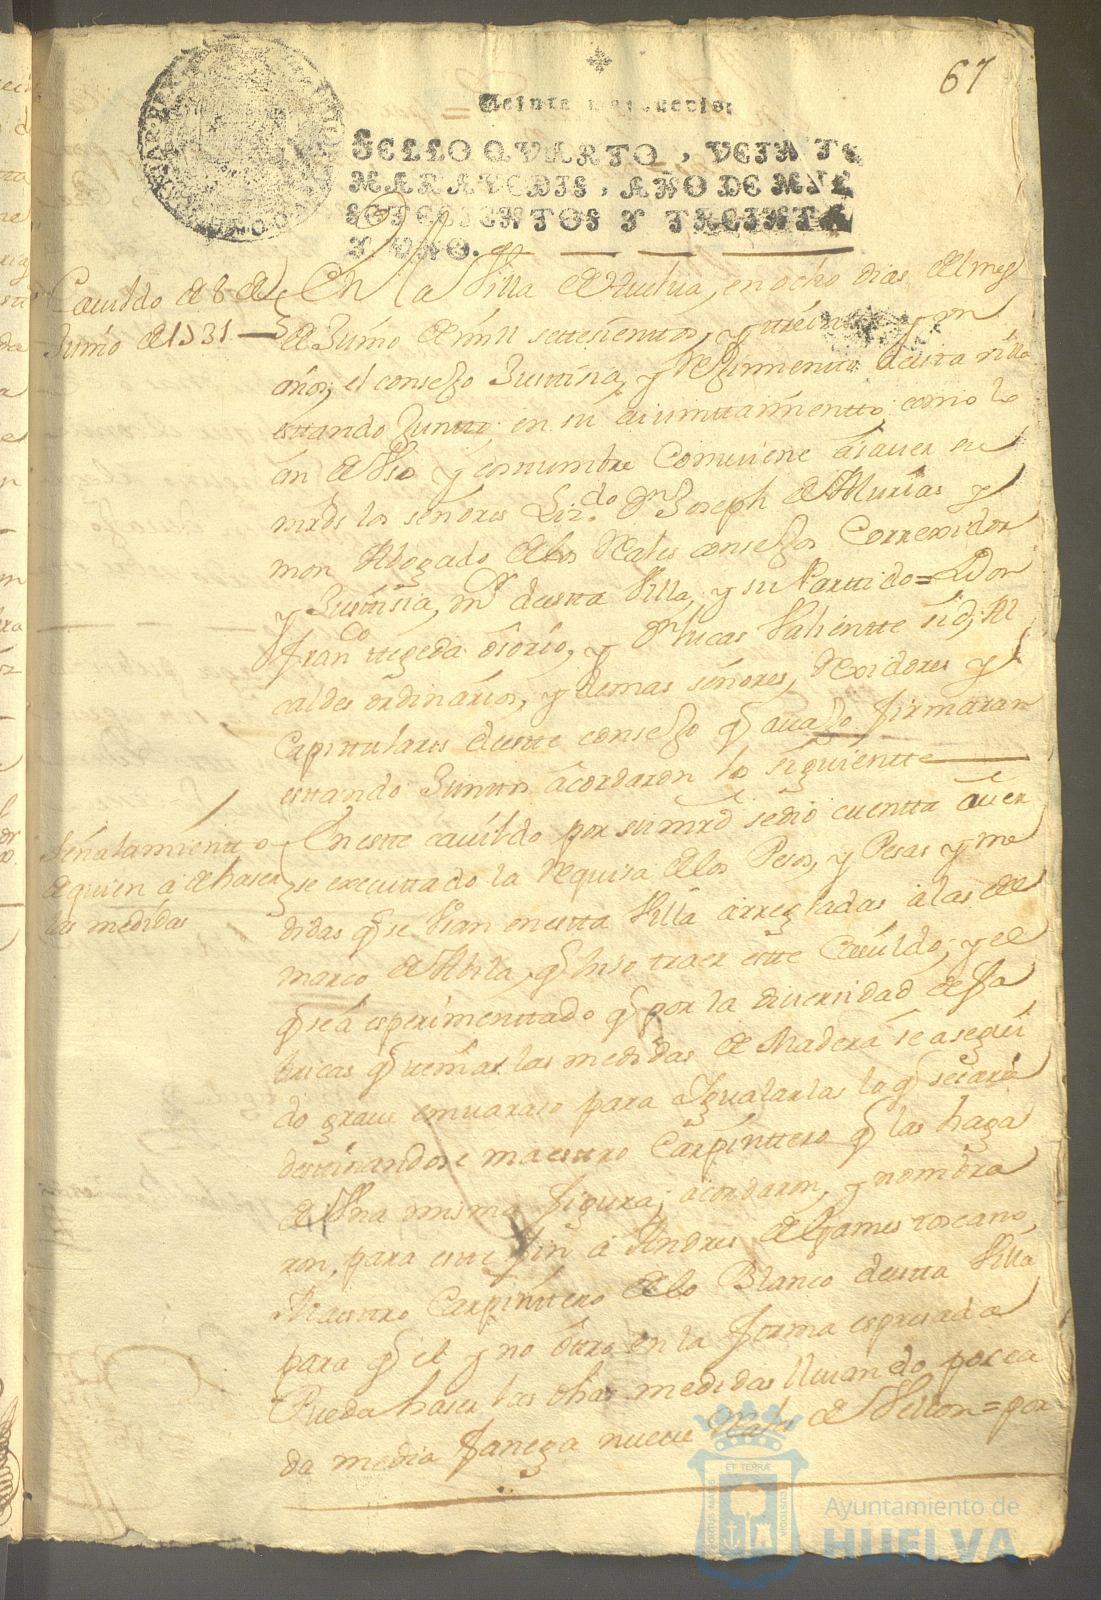 67
Veinte maravedis.
SELLO QVARTO, VEINTE
MARAVEDIS, AÑO DE MIL
SETECIENTOS Y TREINTA
Y VNO.
Cauildo de 8 de
Junio de 1731
En la Villa de Huelua, en ocho dias del mes
de Junio de mill settesienttos, y treinta y un
años; el consejo Justisia, y Reximiento desta villa
estando Junto en su aiunttamientto, como lo
an de Vso y costumbre Combiene a sauer su
mrds los señores Lizdo Dn Joseph de Asturias y
mon Abogado de los Rales consejos Correxidor
y Justisia, mr desta Villa, y su Parttido = Don
Franco tegeda osorio, y Dn lucas Valientte sid, Al
caldes ordinarios, y demas señores, Rexidores y
Capittulares destte consejo q auajo firmaran
estando Junttos acordaron lo siguientte
Señalamientto
de quien a de haser
las medidas
En este cauildo por su mrd se dio cuentta auer
se executtado la Requisa de los Pesos, y Pesas y me
didas q se Vsan en estta Villa arregladas a las del
marco de Abila, q hiso traer este Cauildo; y el
q se a esperimenttado q por la diuersidad de fa
bricas q tenias las medidas de Madera se a segui
do graue embaraso para Igualarlas lo q sesara
destinandose maestro Carpinttero q las haga
de Vna misma figura; acordaron, y nombra
ron, para este fin a Andres de Games toscano,
Maestro Carpinttero de lo Blanco destta Villa
para q el y no otro en la forma espresada
Pueda haser las dhas medidas lleuando por ca
da media fanega nueue Rales de Vellon = por
ET TERRÆ
PORTUS MARIS
CUSTODIA
Ayuntamiento de
HUELVA